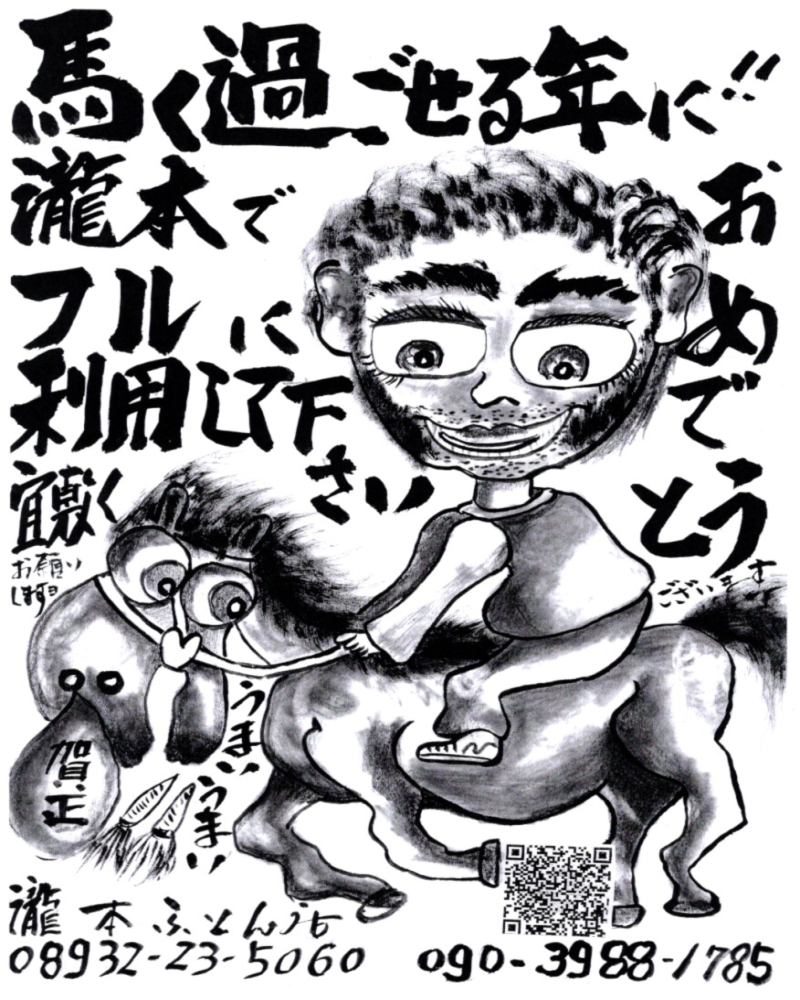 馬く過ごせる年に!!
瀧本で
フルに
利用して下さい
宜敷く
お願い
します
おめでとう
ございます
うまい
うまい
賀正
瀧本ふとん店
08932-23-5060 090-3988-1785